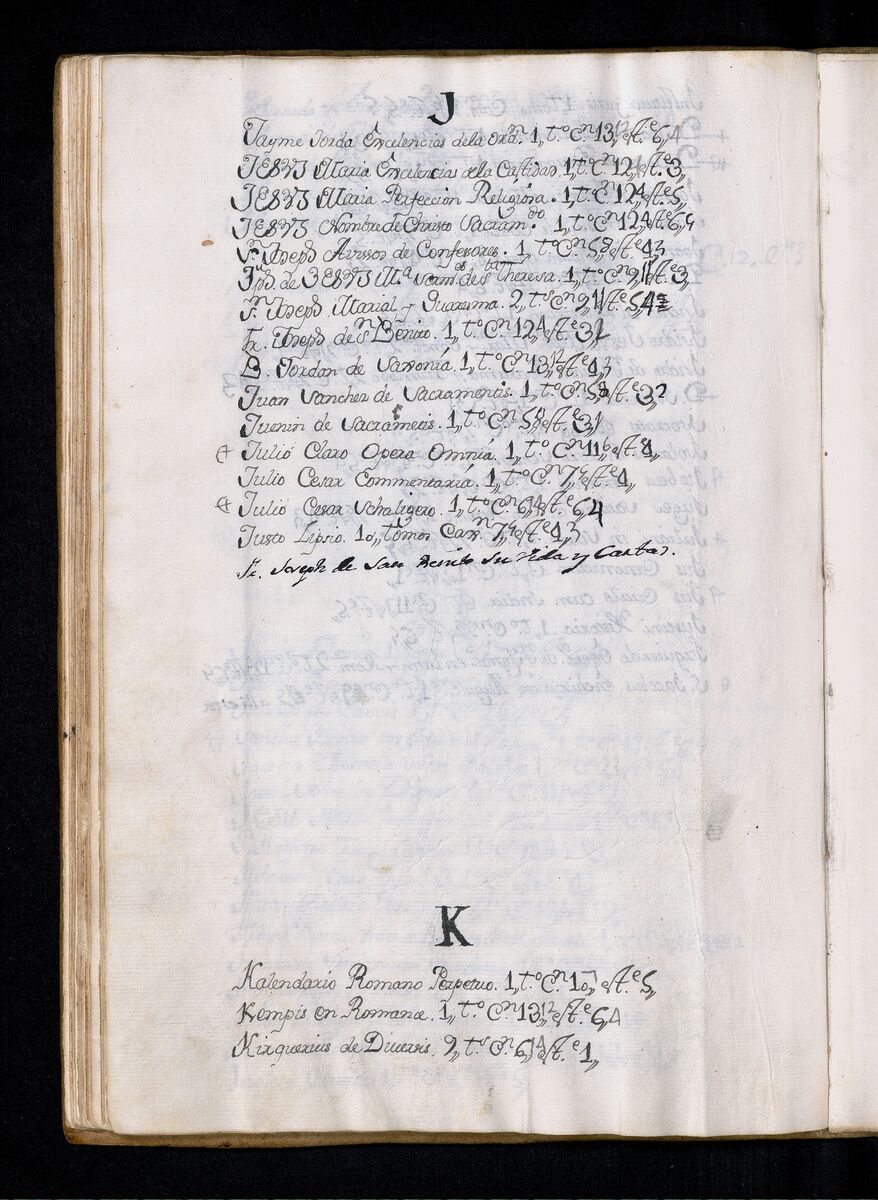 J
Jayme Jorda Excelencias de la Orān. 1,, t.º C.n 13,, est.e 6,, 4
JESUS Maria Excelencias de la Castidad. 1,, t.º C.n 12,, 4 est.e 3,,
JESUS Maria Perfeccion Religiosa. 1,, t.º C.n 12,, 4 est.e 5,,
JESUS Nombre de Christo Sacram.do 1,, t.º C.n 12,, 4 est.e 6,,
S.n Joseph Avissos de Confesores. 1,, t.º C.n 5,, 8 est.e 4,, 3
Jph. de JESUS M.a Serm.es de S.ta Theresa. 1,, t.º C.n 9,, 11 est.e 3,,
S.n Joseph Marial y Quaresma. 2,, t.s C.n 9,, 11 est.e 5,,
Fr. Joseph de S.n Benito. 1,, t.º C.n 12,, 4 est.e 3,, 2
B. Jordan de Saxonia. 1,, t.º C.n 13,, 12 est.e 4,, 3
Juan Sanchez de Sacramentis. 1,, t.º C.n 5,, 8 est.e 3,, 2
Juenin de Sacrametis. 1,, t.º C.n 5,, 8 est.e 3,,
Julio Claro Opera Omniá. 1,, t.º C.n 11,, 6 est.e
Julio Cesar Commentariá. 1,, t.º C.n 7,, 9 est.e 1,,
Julio Cesar Schaligero. 1,, t.º C.n 6,, 14 est.e 6,, 4
Justo Lipsio. 10,, tomos Cax.n 7,, 9 est.e 4,, 3
Fr. Joseph de San Benito Su Vida y Cartas.
K
Kalendario Romano Perpetuo. 1,, t.º C.n 10,, est.e 5,,
Kempis en Romance. 1,, t.º C.n 13,, 12 est.e 6,, 4
Kirquerius de Diversis. 9,, t.s C.n 6,, 14 est.e 1,,